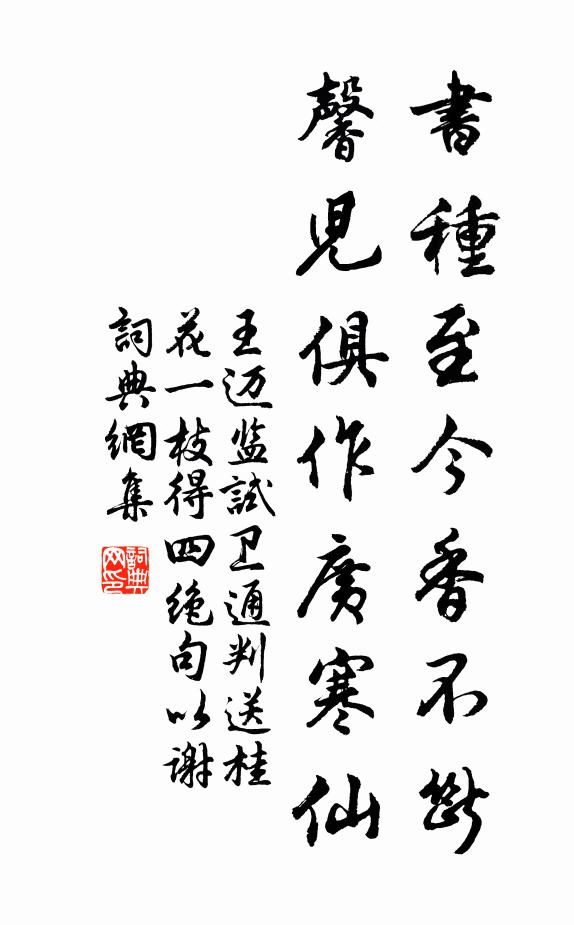 書種至今香不斷
馨児俱作廣寒仙
王迈监試卫通判送桂
花一枝得四絶句以谢
詞典網集
詞典网印